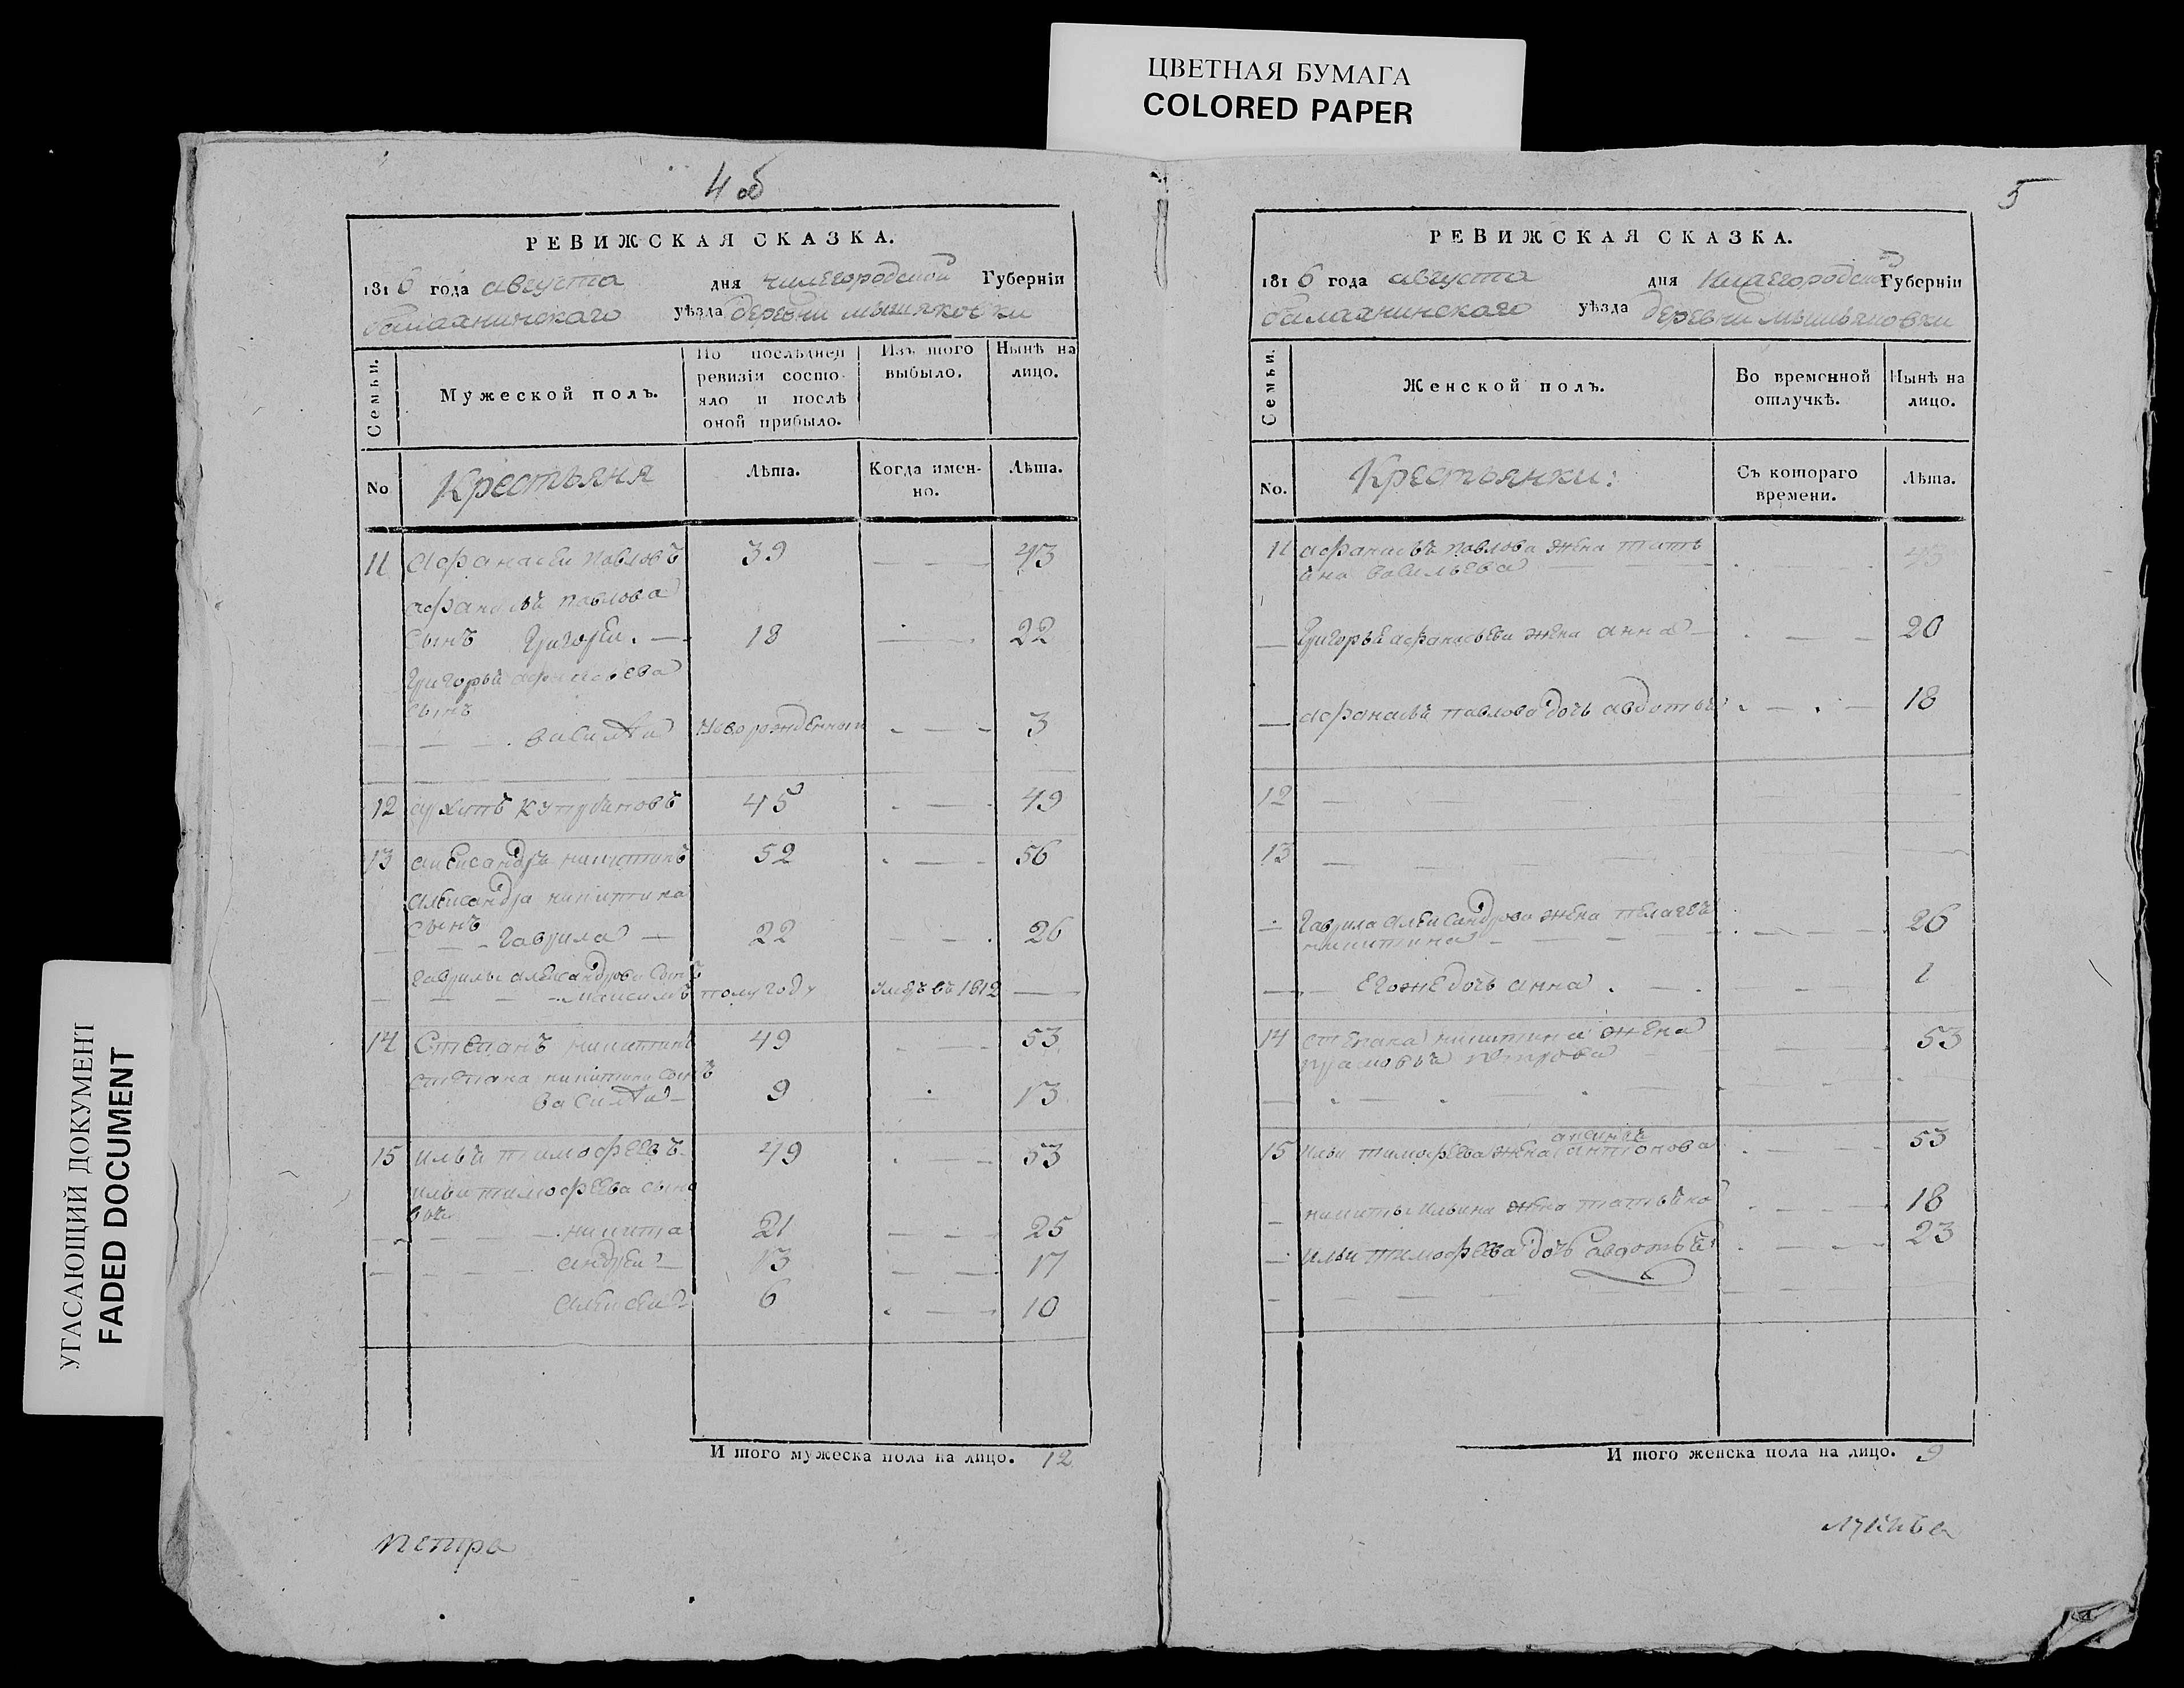 ЦВЕТНАЯ БУМАГА
COLORED PAPER
УГАСАЮЩИЙ ДОКУМЕНТ
FADED DOCUMENT
4 об
РЕВИЖСКАЯ СКАЗКА.
1816 года августа дня нижегородской Губерніи
балахнинскаго уѣзда деревни мышляковки
Семьи.
Мужеской полъ.
По послѣдней
ревизіи состо-
яло и послѣ
оной прибыло.
Изъ того
выбыло.
Нынѣ на
лицо.
No
Крестьяня
Лѣта.
Когда имен-
но.
Лѣта.
11 Афанасеи павловъ 39 43
афанасьи павлова
сынъ Григореи 18 22
Григорьи афанасьева
сынъ
василеи новорожденнои 3
12 архипъ 45 49
13 александръ никитинъ 52 56
александра никитина
сынъ
гаврила 22 26
гаврилы александрова сынъ
максимъ полугоду умеръ въ 1812
14 Степанъ никитинъ 49 53
степана никитина сынъ
василеи 9 13
15 илья тимофеевъ 49 53
ильи тимофеева сыно
вья
никита 21 25
андреи 13 17
алексеи 6 10
И того мужеска пола на лицо. 12
петра
5
РЕВИЖСКАЯ СКАЗКА.
1816 года августа дня Нижегородской Губерніи
балахнинскаго уѣзда деревни мышляковки
Семьи.
Женской полъ.
Во временной
отлучкѣ.
Нынѣ на
лицо.
No.
Крестьянки:
Съ котораго
времени.
Лѣта.
11 афанасьи павлова жена тать
яна васильева 43
Григорьи афанасьева жена анна 20
афанасьи павлова дочь авдотья 18
12
13
гаврила александрова жена пелагея
никитина 26
егоже дочь анна 1
14 степана никитина жена
петрова 53
15 ильи тимофеева жена антонова 53
никиты ильина жена татьяна 18
ильи тимофеева дочь авдотья 23
И того женска пола на лицо. 9